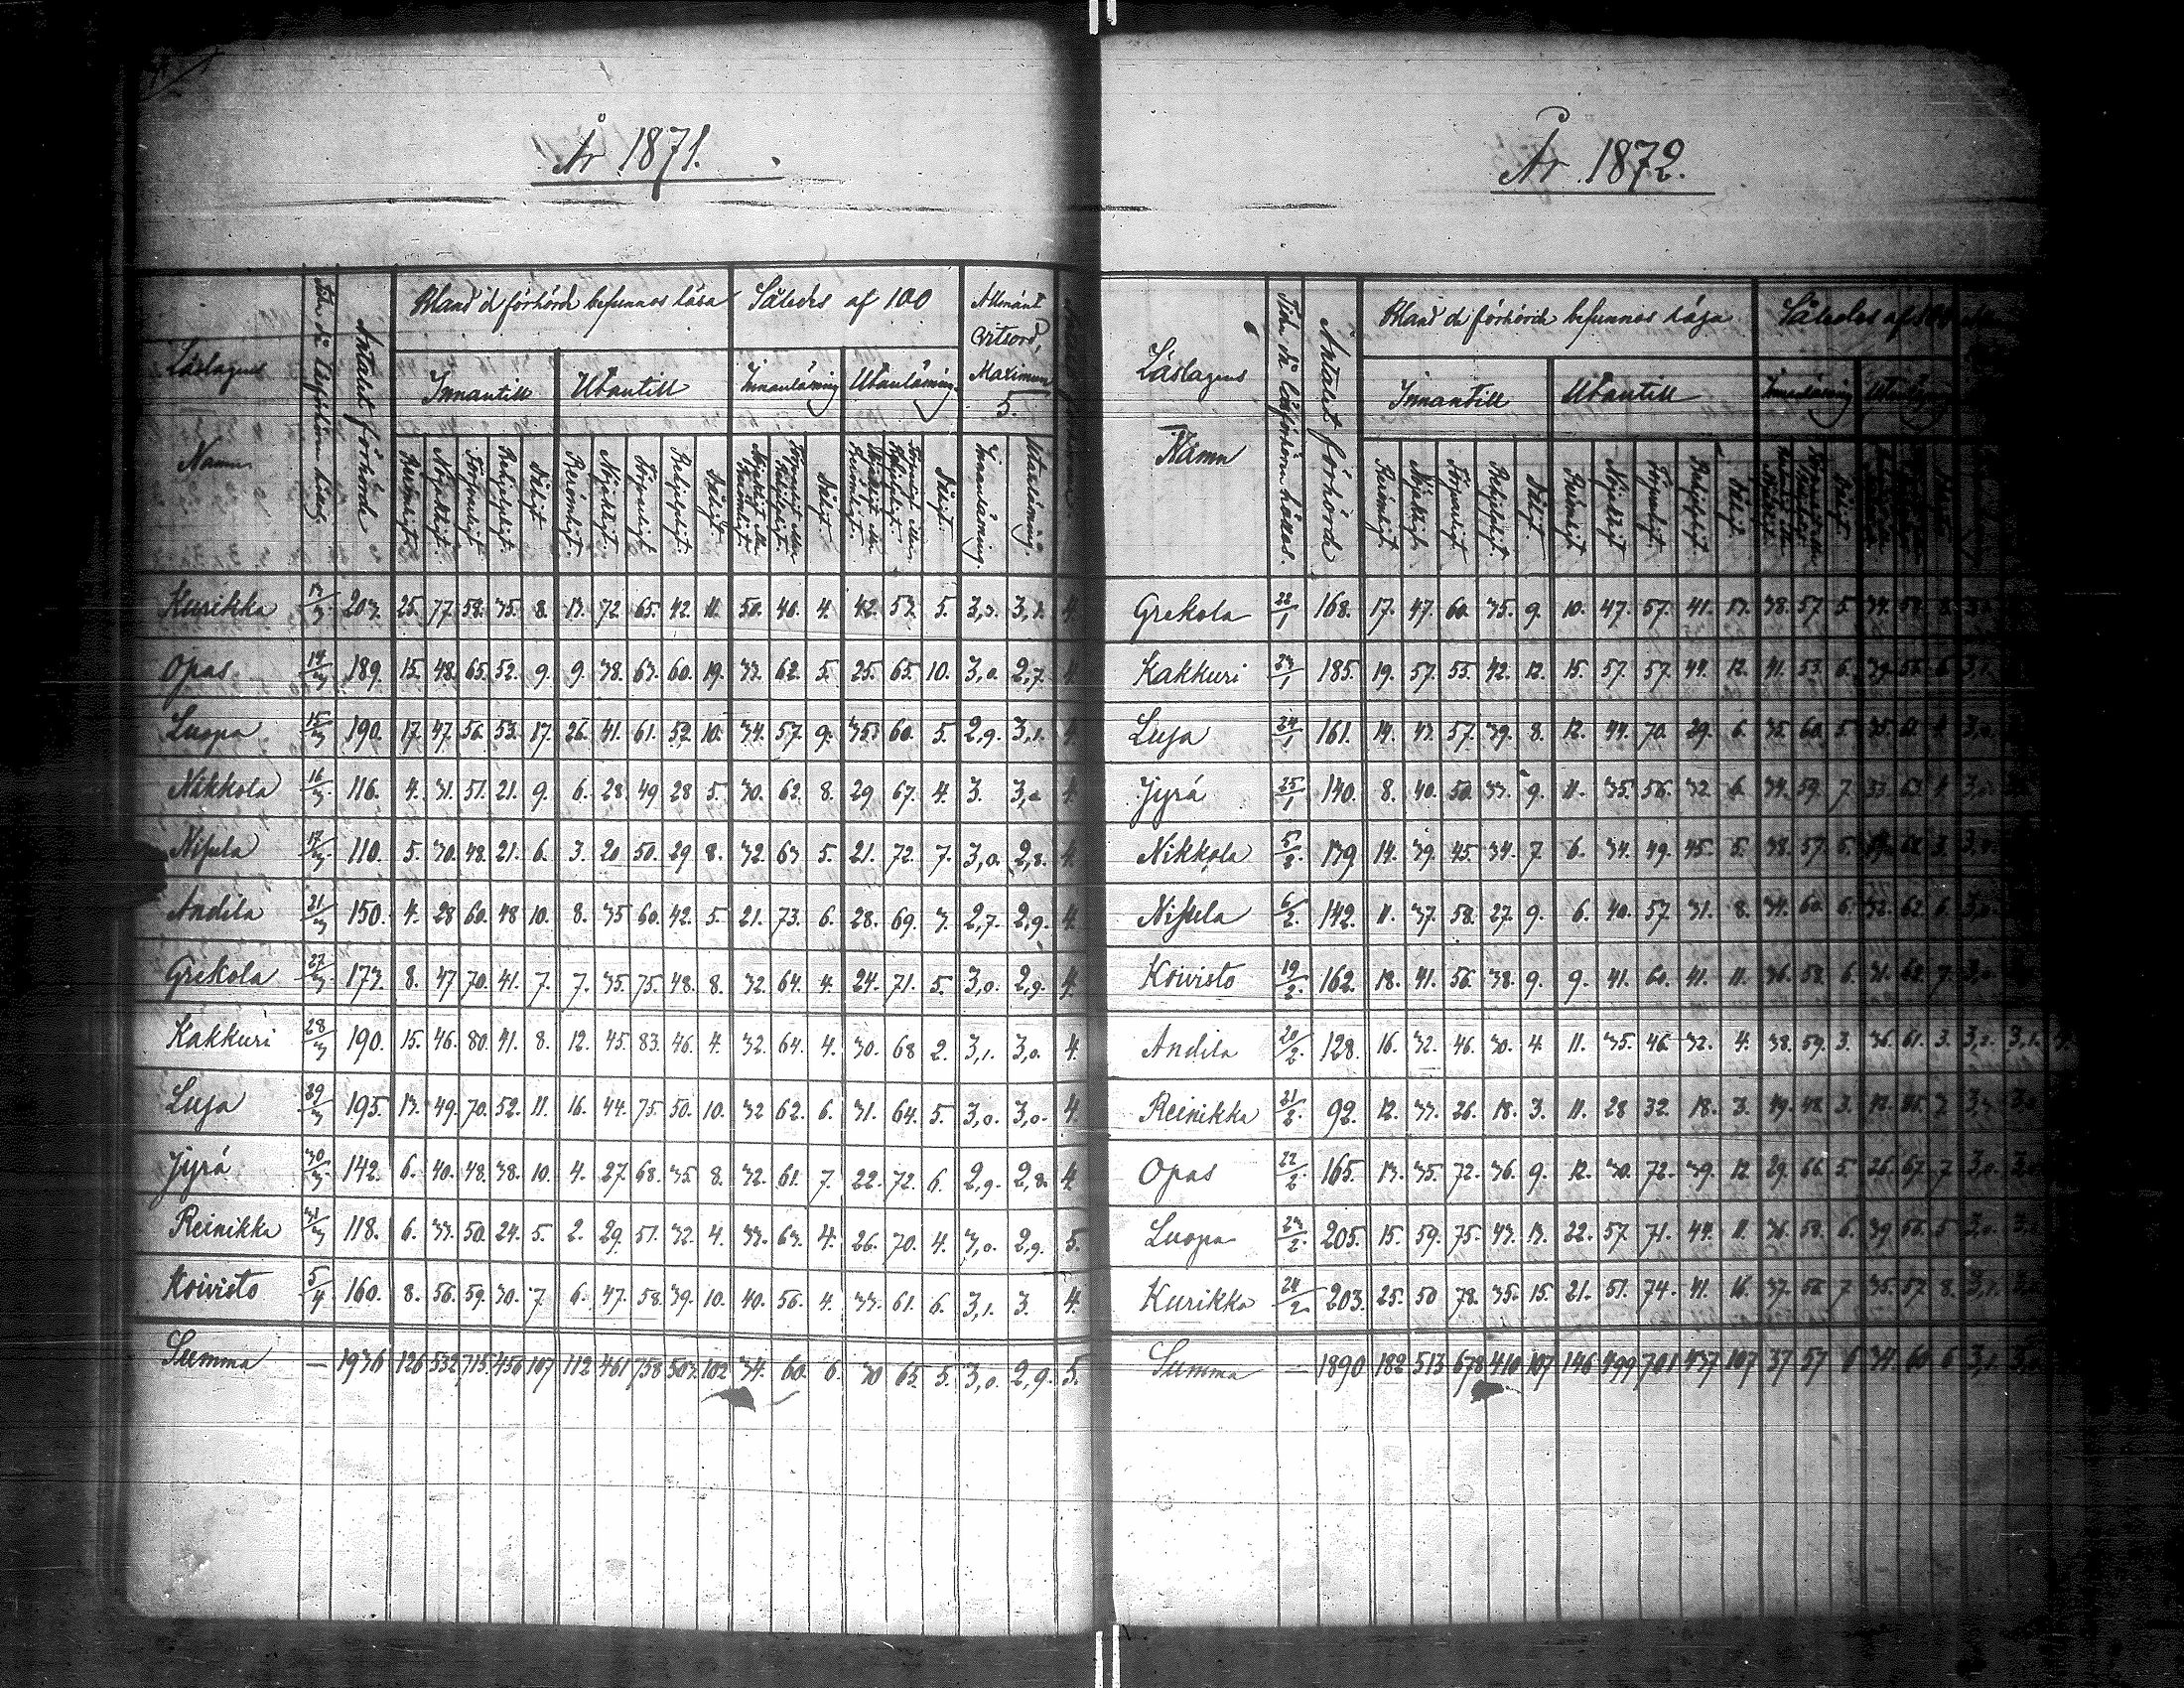 År 1871.
Läslagens Namn
Antalet förhörde
Bland de förhörde befunnos läsa
Innantill Utantill
Således af 100
Innanläsning Utanläsning
Allmänt Vitsord, Maximum 5.
Berömligt. Nöjaktigt. Försvarligt. Behjelpligt. Dåligt. Berömligt. Nöjaktigt. Försvarligt. Behjelpligt. Dåligt.
Innanläsning. Utanläsning.
Kurikka 13/3 203. 25. 77. 58. 35. 8. 13. 72. 65. 42. 11. 50. 46. 4. 42. 53. 5. 3,3. 4
Opas 14/3 189. 15. 48. 65. 52. 9. 9. 38. 63. 60. 19. 33. 62. 5. 25. 65. 10. 3,0. 2,7. 4
Luopa 15/3 190. 17. 47. 56. 53. 17. 26. 41. 61. 52. 10. 34. 57. 9. 35. 60. 5. 2,9. 3,1. 4
Nikkola 16/3 116. 4. 31. 51. 21. 9. 6. 28 49 28 5. 30. 62. 8. 29 67. 4. 3. 3,0 4
Nisula 17/3 110. 5. 30. 48. 21. 6. 3. 20 50. 29 8. 32. 63 5. 21. 72. 7. 3,0. 2,8. 4.
Andila 21/3 150. 4. 28 60. 48 10. 8. 35 60. 42. 5. 21. 73. 6. 28. 69. 3. 2,7. 2,9. 4.
Grekola 27/3 173. 8. 47 70. 41. 7. 7. 35. 75. 48. 8. 32. 64. 4. 24. 71. 5. 3,0. 2,9. 4.
Kakkuri 28/3 190. 15. 46. 80. 41. 8. 12. 45. 83. 46. 4. 32. 64. 4. 30. 68 2. 3,1. 3,0. 4.
Luja 29/3 195. 13. 49. 70. 52. 11. 16. 44. 75. 50. 10. 32 62. 6. 31. 64. 5. 3,0. 3,0. 4.
Jyrä 30/3 142. 6. 40. 48. 38. 10. 4. 27. 68. 35. 8. 32. 61. 7. 22. 72. 6. 2,9. 2,8. 4.
Reinikka 31/3 118. 6. 33. 50. 24. 5. 2. 29. 51. 32. 4. 33. 63. 4. 26. 70. 4. 3,0. 2,9. 5.
Koivisto 5/4 160. 8. 56. 59. 30. 7 6. 47. 58. 39. 10. 40. 56. 4. 33. 61. 6. 3,1. 3. 4.
Summa — 1936 126 532 715 456 107 112 461 758 503 102 34. 60. 6. 30 65. 5. 3,0. 2,9. 5.
År 1872.
Läslagens Namn
Tiden då läsförhören hölles.
Antalet förhörde
Bland de förhörde befunnos läsa
Innantill Utantill
Således af 100
Innanläsning
Berömligt. Nöjaktigt. Försvarligt. Behjelpligt. Dåligt. Berömligt. Nöjaktigt. Försvarligt. Behjelpligt. Dåligt.
Grekola 22/1 168. 17. 47. 60. 35. 9. 10. 47. 57. 41. 13. 38. 57. 5.
Kakkuri 23/1 185. 19. 57. 55. 42. 12. 15. 57. 57. 44. 12. 41. 53. 6.
Luja 24/1 161. 14. 43. 57. 39. 8. 12. 44. 70. 29. 6. 35. 60. 5.
Jyrä 25/1 140. 8. 40. 50. 33. 9. 11. 35. 56. 32 6. 34. 59. 7
Nikkola 5/2. 139 14. 39. 45. 34. 7 6. 34. 49. 45. 5. 38. 57. 5.
Nisula 6/2. 142. 11. 37. 58. 27. 9. 6. 40. 57. 31. 8. 34. 60. 6. 32. 62 6.
Koivisto 19/2. 162. 18. 41. 56. 38. 9. 9. 41. 60. 41. 11. 36. 58. 6.
Andila 20/2. 128. 16. 32. 46. 30. 4. 11. 35. 46. 32. 4. 38. 59. 3. 36. 61. 3. 3,2. 3,1.
Reinikka 21/2. 92. 12. 33. 26. 18. 3. 11. 28 32 18. 3. 49. 48. 3.
Opas 22/2 165. 13. 35. 72. 36. 9. 12. 30. 72. 39. 12. 29. 66. 5. 26. 67. 7 3,0.
Luopa 23/2. 205. 15. 59. 75. 43. 13. 22. 57. 71. 44. 11. 36. 58. 6. 39 56. 5
Kurikka 24/2. 203. 25. 50 78. 35. 15. 21. 51. 74. 41. 16. 37. 56. 7 35. 57 8. 3,1.
Summa — 1890 182 513 678 410 107 146 499 701 437 107 37 57 6 34 60 6 3,1.